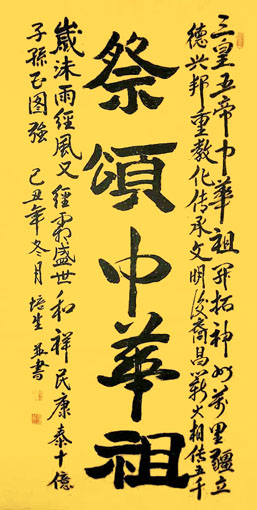 祭頌中華祖
三皇五帝中華祖开拓神州萬里疆立
德兴邦重教化传承文明後裔昌薪火相传五千
歲沐雨經風又經霜盛世和祥民康泰十億
子孫正图强
己丑年冬月 培生 并書